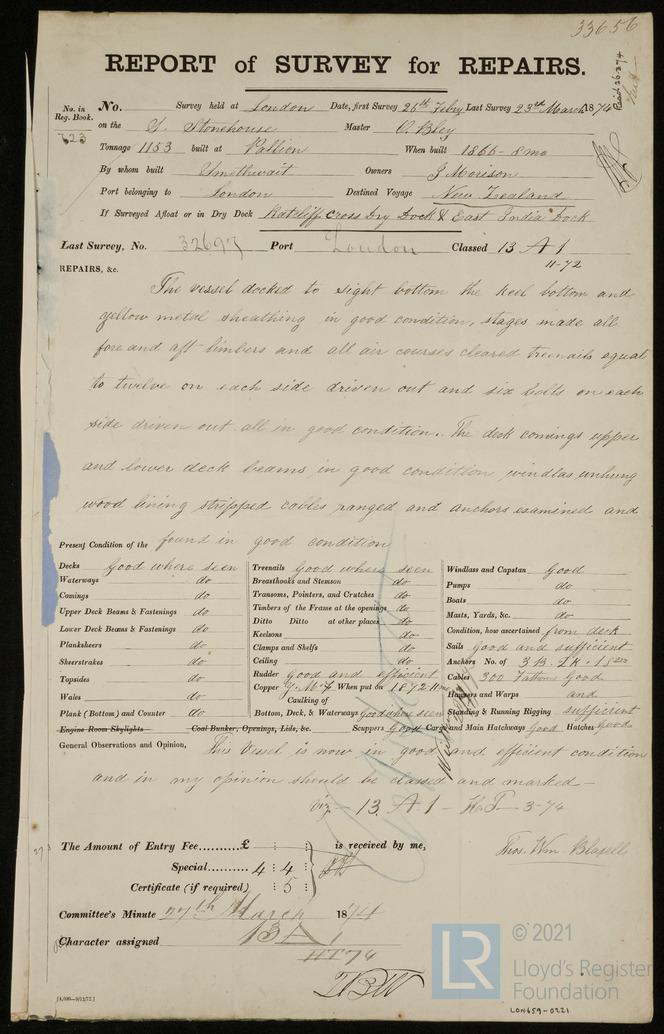 33656
REPORT of SURVEY for REPAIRS.
Recd 26.3.74
No. in Reg. Book. 723
No. Survey held at London Date, first Survey 26th Feby Last Survey 23rd March 1874
on the G. Stonehouse Master O. Bley
Tonnage 1153 built at Pallion When built 1866 - 8mo
By whom built Smethwait Owners J Morison
Port belonging to London Destined Voyage New Zealand
If Surveyed Afloat or in Dry Dock Ratcliff Cross Dry Dock & East India Dock
Last Survey, No. 32697 Port London Classed 13 A 1
11-72
REPAIRS, &c.
The vessel docked to sight bottom the keel bottom and
yellow metal sheathing in good condition, stages made all
fore and aft limbers and all air courses cleared treenails equal
to twelve on each side driven out and six bolts on each
side driven out all in good condition. The deck comings upper
and lower deck beams in good condition windlas unhung
wood lining stripped cables ranged and anchors examined and
found in good condition
Present Condition of the
Decks good where seen
Waterways do
Comings do
Upper Deck Beams & Fastenings do
Lower Deck Beams & Fastenings do
Planksheers do
Sheerstrakes do
Topsides do
Wales do
Plank (Bottom) and Counter do
Engine Room Skylights
Treenails good where seen
Breasthooks and Stemson do
Transoms, Pointers, and Crutches do
Timbers of the Frame at the openings do
Ditto Ditto at other places do
Keelsons do
Clamps and Shelfs do
Ceiling do
Rudder good and efficient
Copper Y. M. F. When put on 1872-11mo
Caulking of
Bottom, Deck, & Waterways good where seen
Coal Bunker, Openings, Lids, &c. Scuppers Good Cargo and Main Hatchways Good Hatches Good
Windlass and Capstan Good
Pumps do
Boats do
Masts, Yards, &c. do
Condition, how ascertained from deck
Sails good and sufficient
Anchors No. of 3 B. 1 K.
Cables 300 Fathoms Good
Hawsers and Warps and
Standing & Running Rigging sufficient
General Observations and Opinion, This Vessel is now in good and efficient condition
and in my opinion should be classed and marked -
viz - 13 A 1 - H T - 3-74
Thos. Wm Blasell
The Amount of Entry Fee..........£ : : is received by me,
Special......... 4 : 4 :
Certificate (if required) : 5 :
Committee's Minute 27th March 1874
Character assigned 13 A 1
HT 74
[4,000-9/12/72.]
LR
© 2021
Lloyd's Register
Foundation
LON659-0221